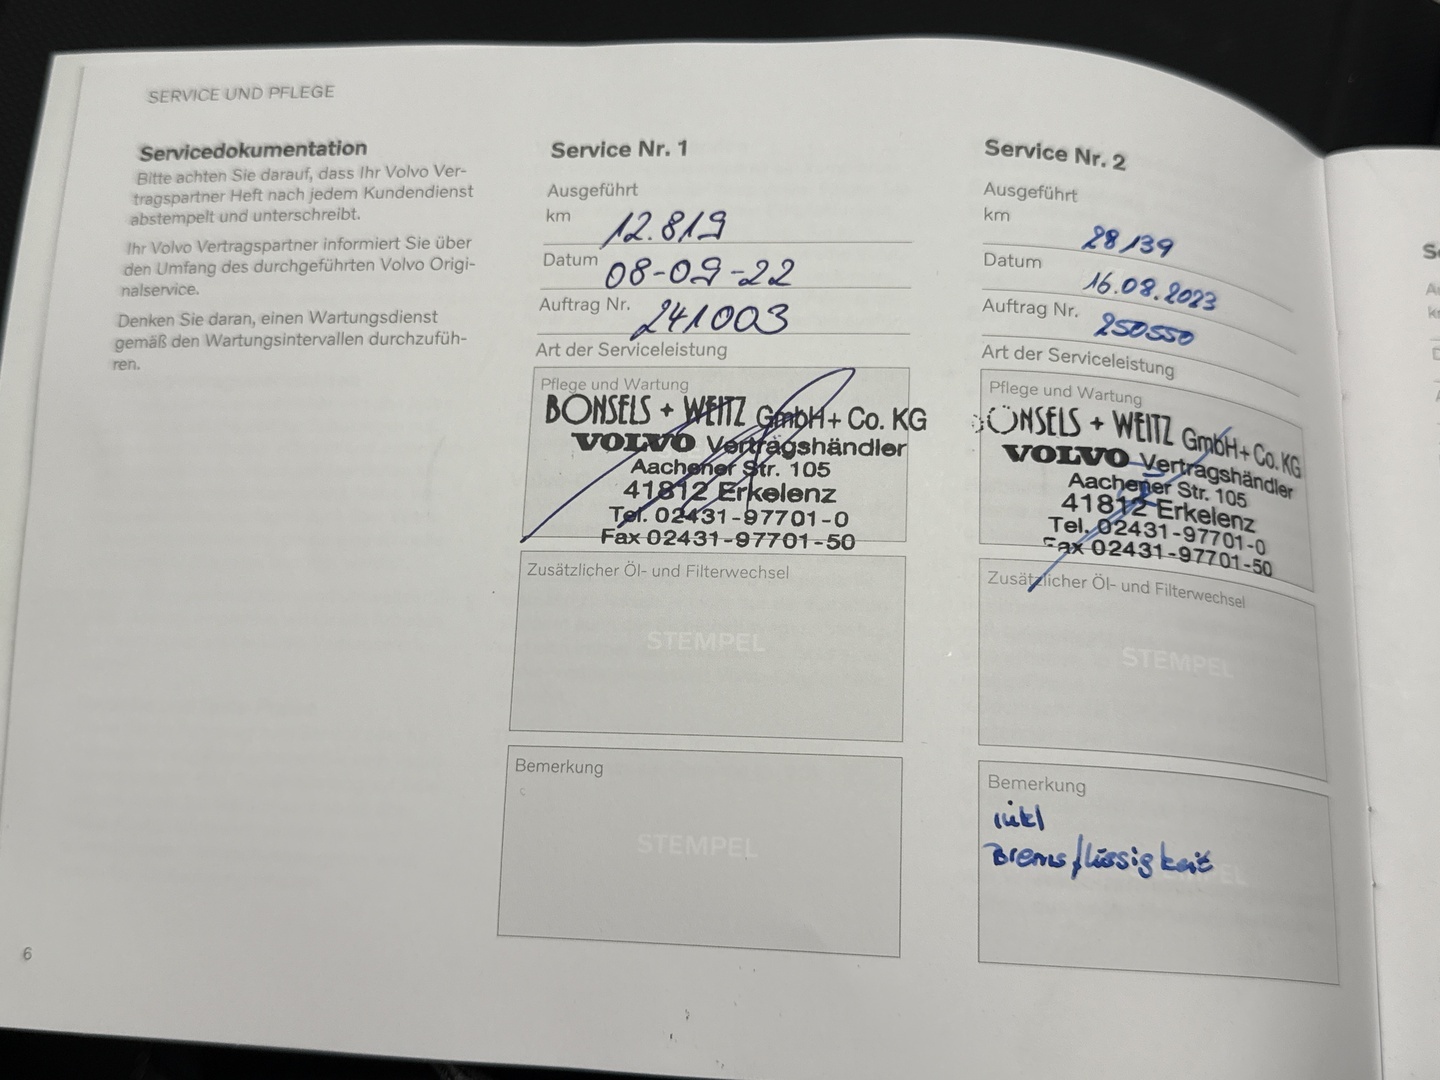 SERVICE UND PFLEGE
Servicedokumentation
Bitte achten Sie darauf, dass Ihr Volvo Ver-
tragspartner Heft nach jedem Kundendienst
abstempelt und unterschreibt.
Ihr Volvo Vertragspartner informiert Sie über
den Umfang des durchgeführten Volvo Origi-
nalservice.
Denken Sie daran, einen Wartungsdienst
gemäß den Wartungsintervallen durchzufüh-
ren.
6
Service Nr. 1
Ausgeführt
km 12.819
Datum 08-09-22
Auftrag Nr. 241003
Art der Serviceleistung
Pflege und Wartung
BONSELS + WEITZ GmbH + Co. KG
VOLVO Vertragshändler
Aachener Str. 105
41812 Erkelenz
Tel. 02431-97701-0
Fax 02431-97701-50
Zusätzlicher Öl- und Filterwechsel
STEMPEL
Bemerkung
STEMPEL
Service Nr. 2
Ausgeführt
km 28139
Datum 16.08.2023
Auftrag Nr. 250550
Art der Serviceleistung
Pflege und Wartung
ONSELS + WEITZ GmbH + Co. KG
VOLVO Vertragshändler
Aachener Str. 105
41812 Erkelenz
Tel. 02431-97701-0
Fax 02431-97701-50
Zusätzlicher Öl- und Filterwechsel
STEMPEL
Bemerkung
inkl
Bremsflüssigkeit